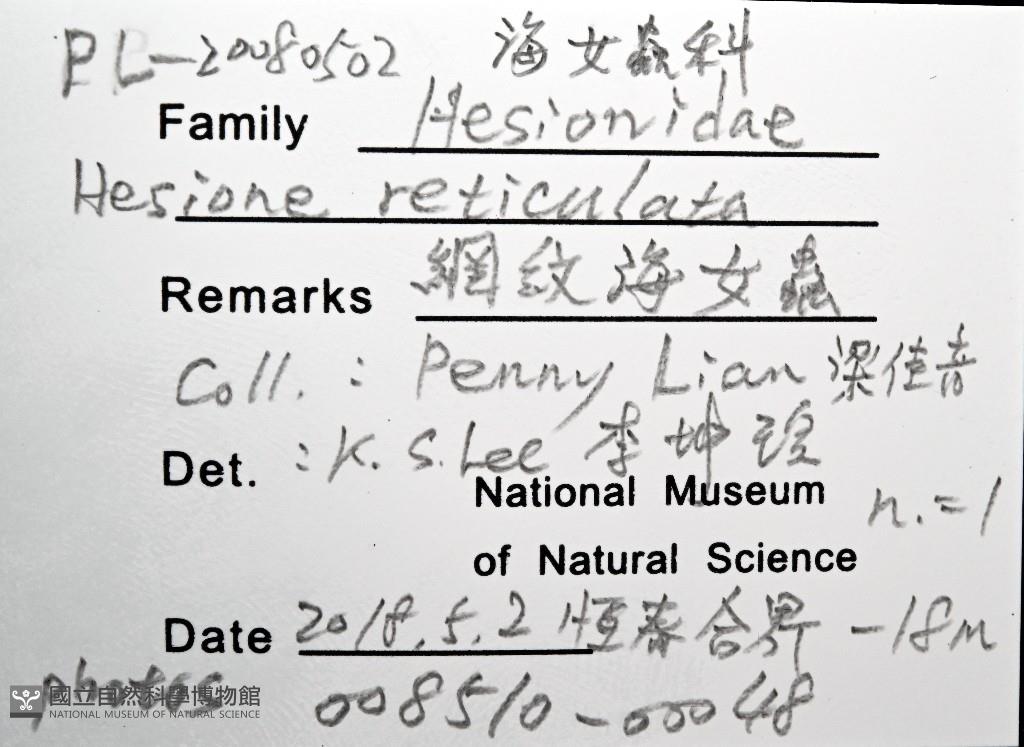 PL-20080502 海女蟲科
Family Hesionidae
Hesione reticulata
Remarks 網紋海女蟲
Coll.: Penny Lian 梁佳音
Det. : K. S. Lee 李坤瑄
National Museum n.=1
of Natural Science
Date 2018.5.2 恆春合界 -18m
photos 008510-00048
國立自然科學博物館
NATIONAL MUSEUM OF NATURAL SCIENCE